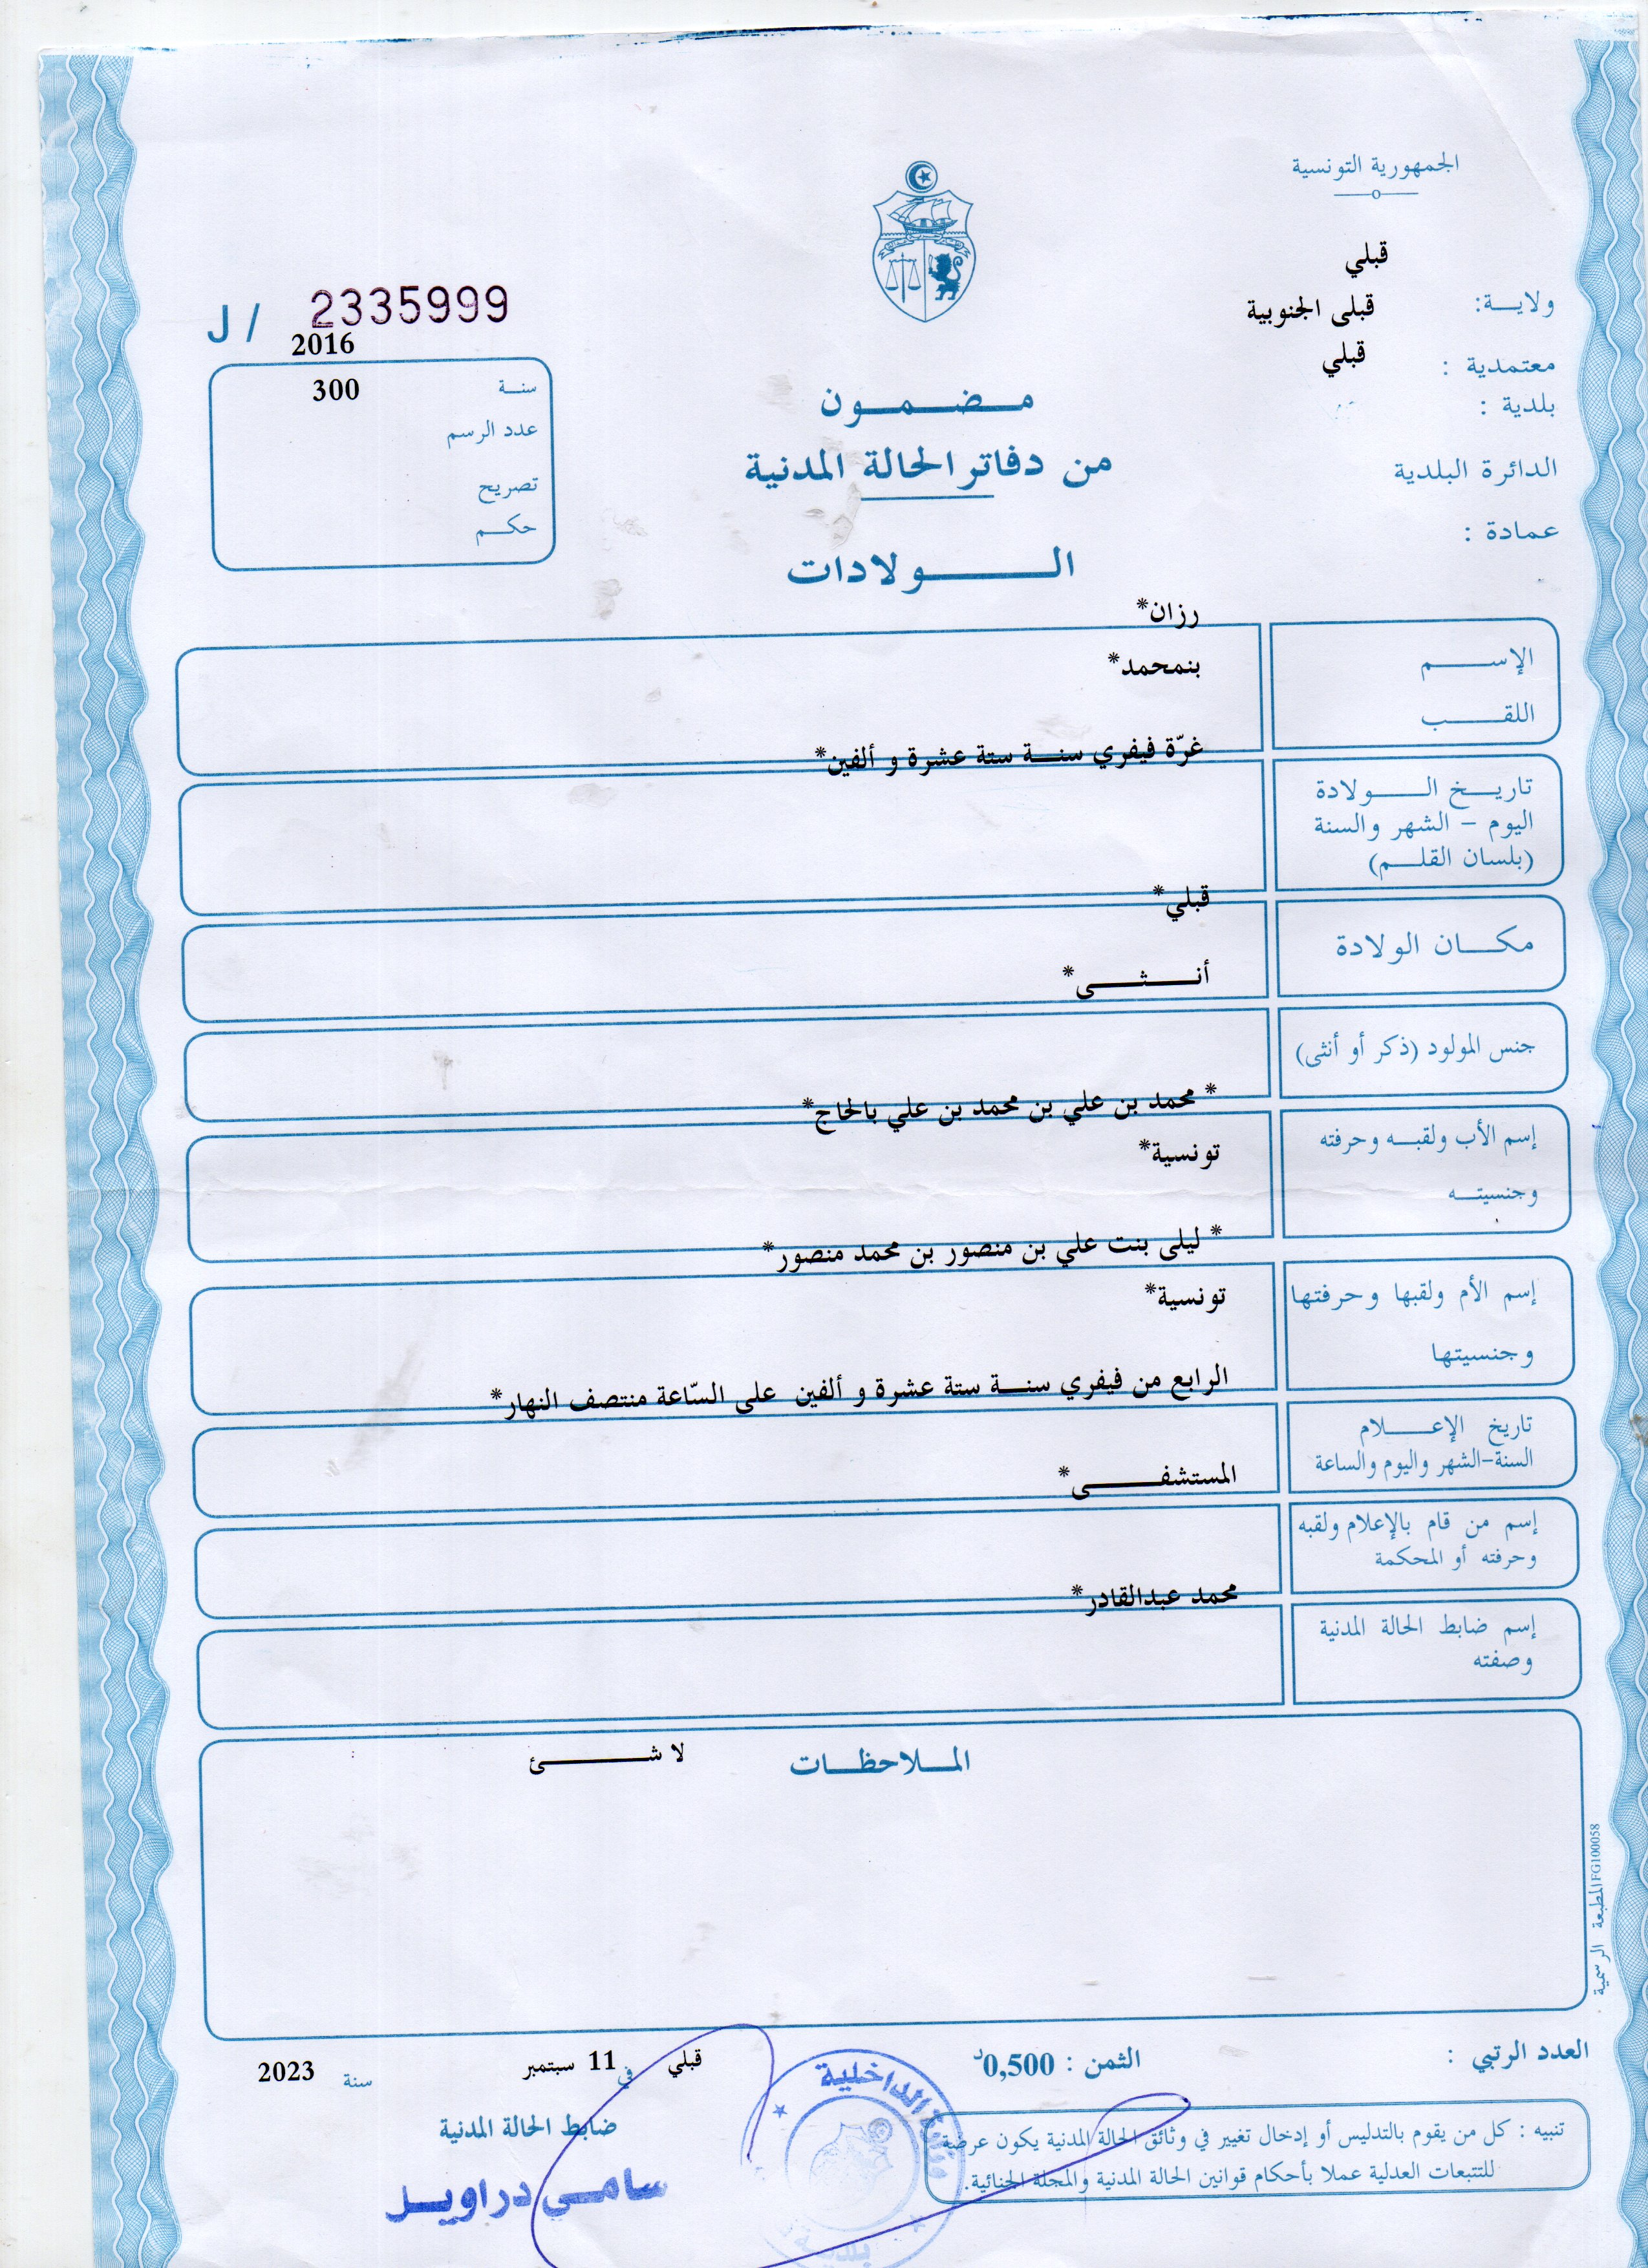 الجمهورية التونسية
قبلي
ولايـــة:
قبلى الجنوبية
معتمدية :
قبلي
بلدية :
الدائرة البلدية
عمادة :
J / 2335999
2016
سنـــة
300
عدد الرسم
تصريح
حكـــم
مـــضـــمـــون
من دفاتر الحالة المدنية
الـــــولادات
رزان*
الإســـــم
بنمحمد*
اللقـــــب
غرّة فيفري سنـــة ستة عشرة و ألفين*
تاريـــخ الـــــولادة
اليوم – الشهر والسنة
(بلسان القلـــم)
قبلي*
مكـــان الولادة
أنـــثـــى*
جنس المولود (ذكر أو أنثى)
* محمد بن علي بن محمد بن علي بالحاج*
إسم الأب ولقبـــه وحرفته
تونسية*
وجنسيتـــه
* ليلى بنت علي بن منصور بن محمد منصور*
إسم الأم ولقبها وحرفتها
تونسية*
وجنسيتها
الرابع من فيفري سنـــة ستة عشرة و ألفين على السّاعة منتصف النهار*
تاريخ الإعـــــلام
السنة-الشهر واليوم والساعة
المستشفـــــى*
إسم من قام بالإعلام ولقبه
وحرفته أو المحكمة
محمد عبدالقادر*
إسم ضابط الحالة المدنية
وصفته
الملـــاحظـــات
لا شـــــئ
المطبعة الرسمية FG100058
العدد الرتبي :
الثمن : 0,500د
قبلي في 11 سبتمبر سنة 2023
ضابط الحالة المدنية
سامي دراويل
وزارة الداخلية
بلدية
تنبيه : كل من يقوم بالتدليس أو إدخال تغيير في وثائق الحالة المدنية يكون عرضة
للتتبعات العدلية عملا بأحكام قوانين الحالة المدنية والمجلة الجنائية.